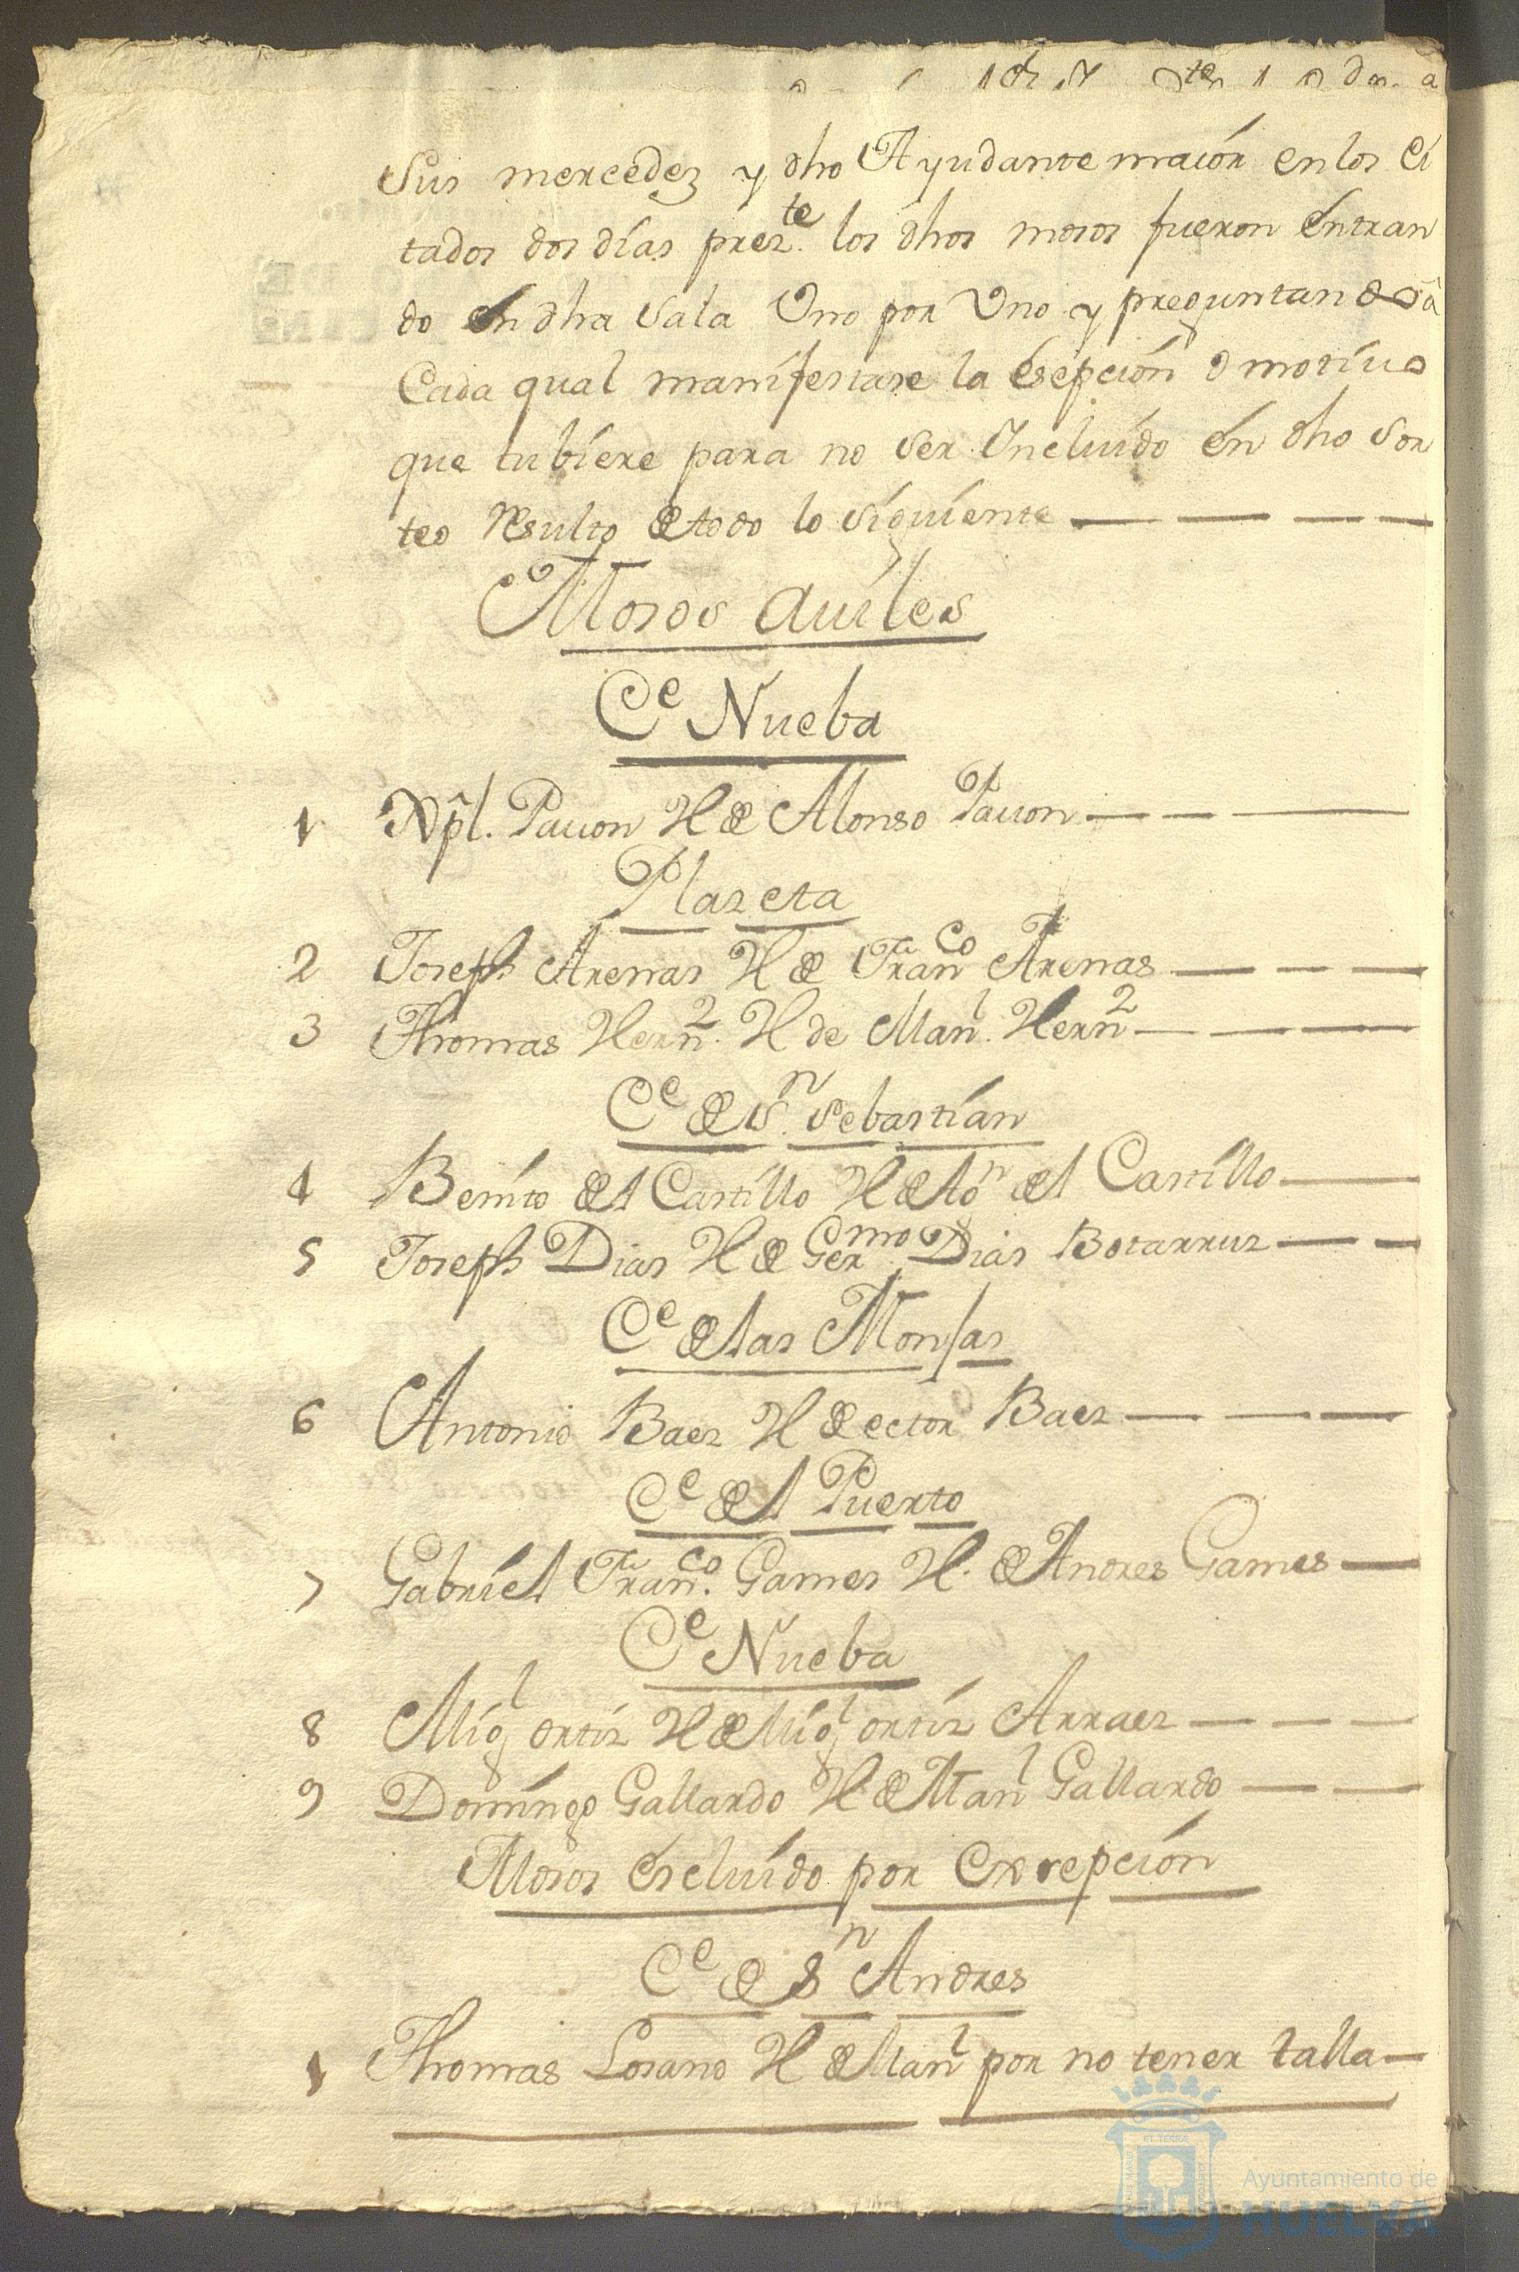 Sus mercedez y dho Ayudante maior en los ci
tados dos días prezte. los dhos mosos fueron entran
do en dha sala Uno por Uno y preguntando â
Cada qual manifestase la esepción o motivo
que tubiere para no ser Yncluido en dho sor
teo Resulto de todo lo siguiente
Mosos aviles
Ce Nueba
1 Xpl. Pavon H de Alonso Pavon
Plazeta
2 Joseph Arenas H de Franco Arenas
3 Thomas Hernz. H de Manl. Hernz
Ce de Sn. Sebastian
4 Benito del Castillo H de Ton del Castillo
5 Joseph Dias H de Germo Dias Botarruz
Ce de las Monjas
6 Antonio Baez H de ector Baez
Ce del Puerto
7 Gabriel Franco. Games H. de Andres Games
Ce Nueba
8 Migl ortiz H de Migl ortiz Arraez
9 Domingo Gallardo H de Manl Gallardo
Mosos escluido por excepción
Ce de Sn Andres
1 Thomas Losano H de Manl por no tener talla
Ayuntamiento de
HUELVA